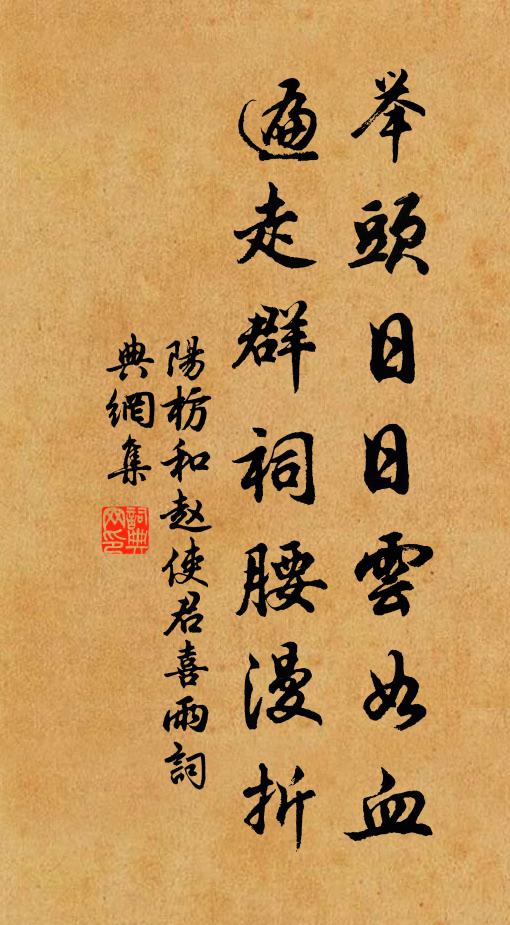 举頭日日雲如血
遍走群祠腰漫折
陽枋和赵使君喜雨詞
典網集
詞典網印